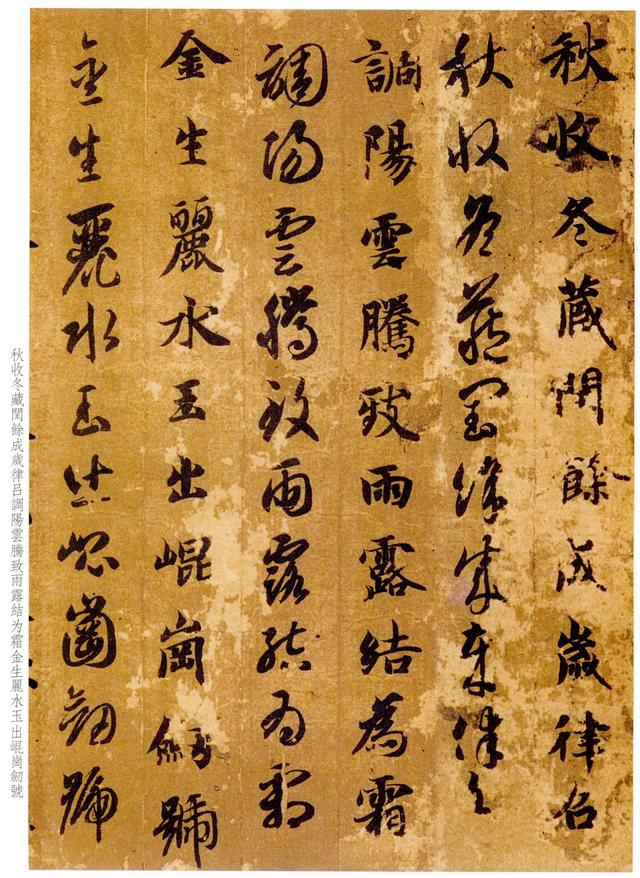 秋收冬蔵閏餘成歲律召
秋收冬蔵閏餘成歲律召
調陽雲騰致雨露結為霜
調陽雲騰致雨露結為霜
金生麗水玉出崐崗劒號
金生麗水玉出崐崗劒號
秋收冬藏閏餘成歲律呂調陽雲騰致雨露結为霜金生麗水玉出崐崗劒號